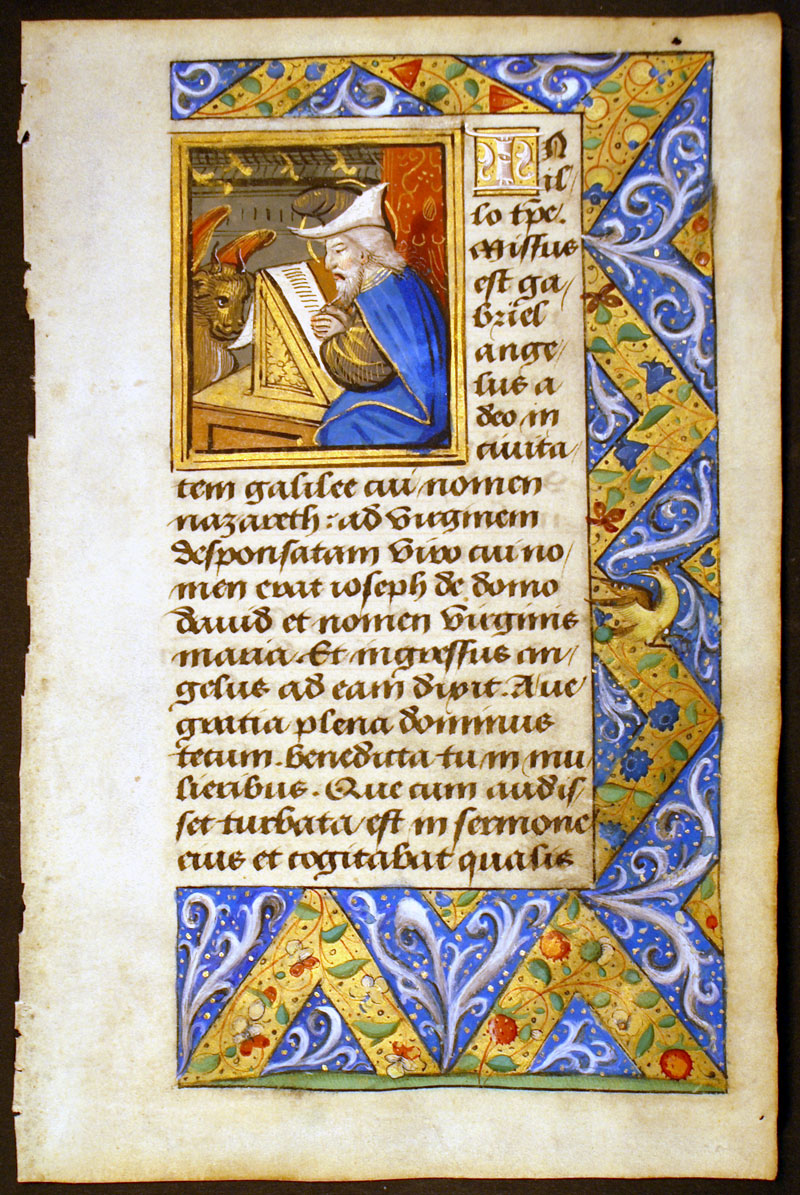 IN
il/
lo tp̄e.
Missus
est ga/
briel
ange/
lus a
deo in
ciuita/
tem galilee cui nomen
nazareth: ad virginem
desponsatam viro cui no/
men erat ioseph de domo
dauid et nomen virginis
maria. Et ingressus an/
gelus ad eam dixit. Aue
gratia plena dominus
tecum. benedicta tu in mu/
lieribus. Que cum audis/
set turbata est in sermone
eius et cogitabat qualis